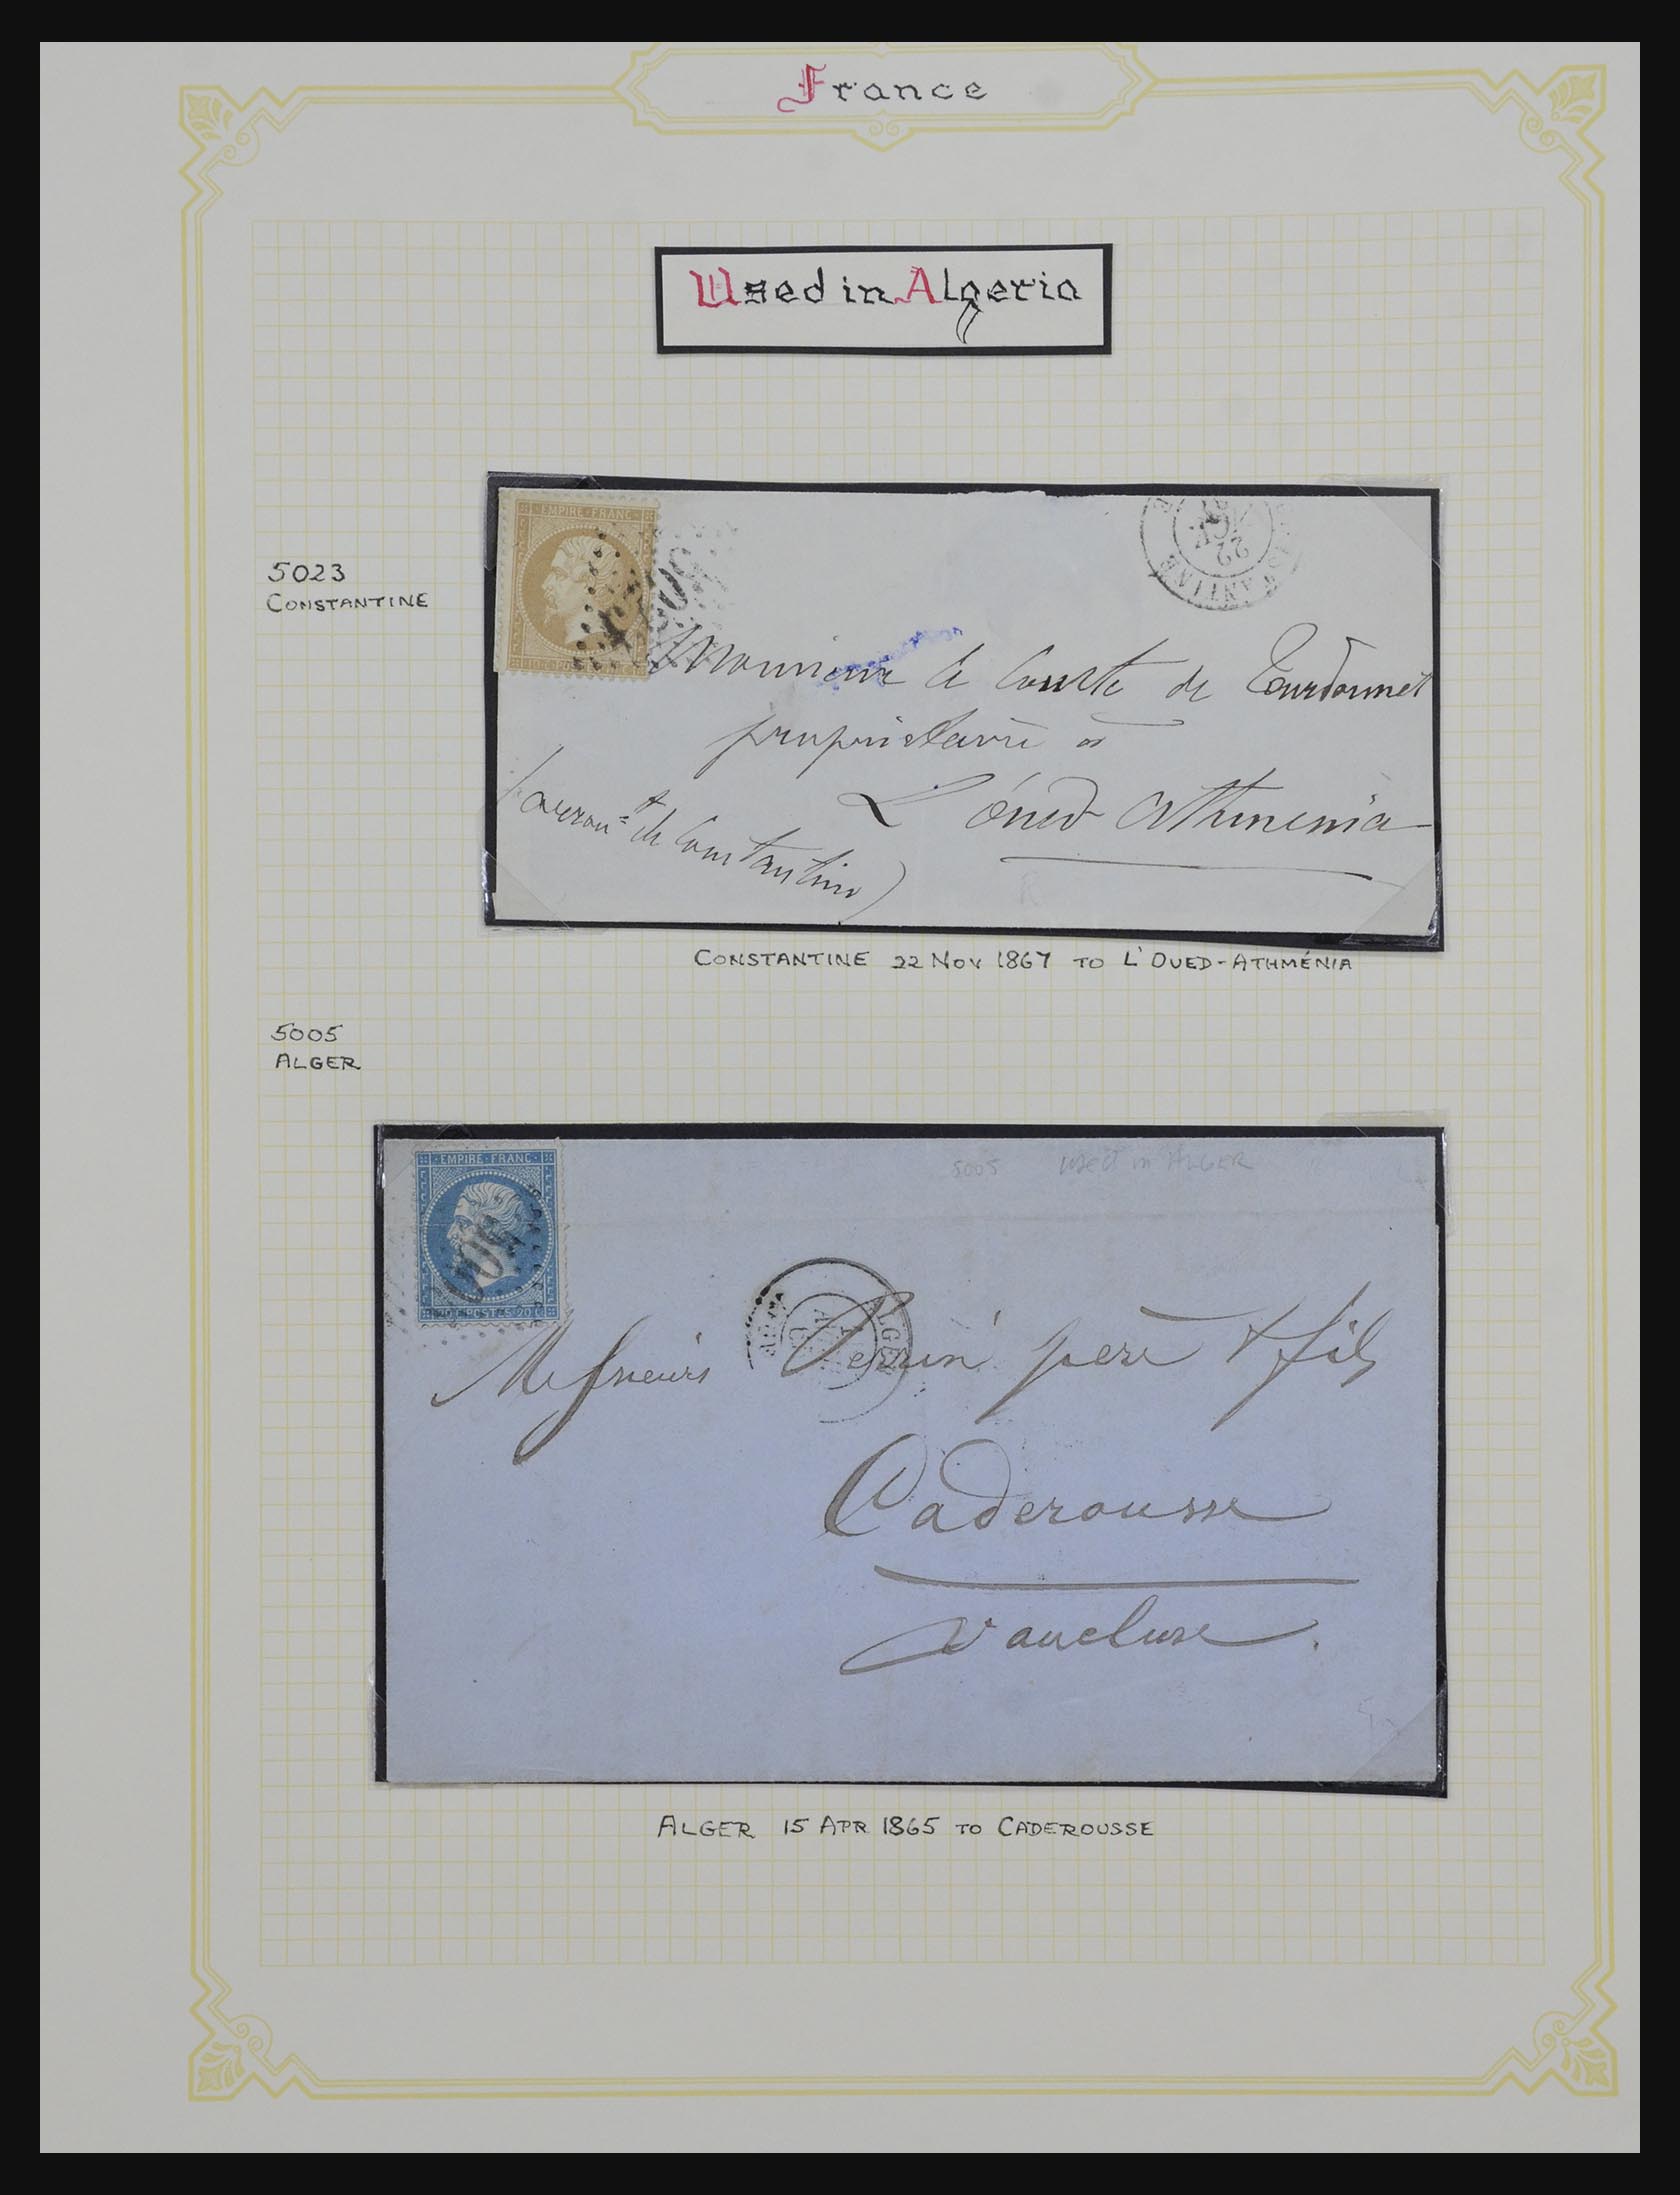 France
Used in Algeria
5023
CONSTANTINE
EMPIRE FRANC
22
NOV
Monsieur le Comte de Tourdonnet
propriétaire à
L'Oued Athmenia
de Constantine)
CONSTANTINE 22 NOV 1867 TO L'OUED-ATHMÉNIA
5005
ALGER
EMPIRE FRANC
20 C POSTES 20 C
5005 used in ALGER
ALGER
Messieurs Perrin père & fils
Caderousse
Vaucluse.
ALGER 15 APR 1865 TO CADEROUSSE